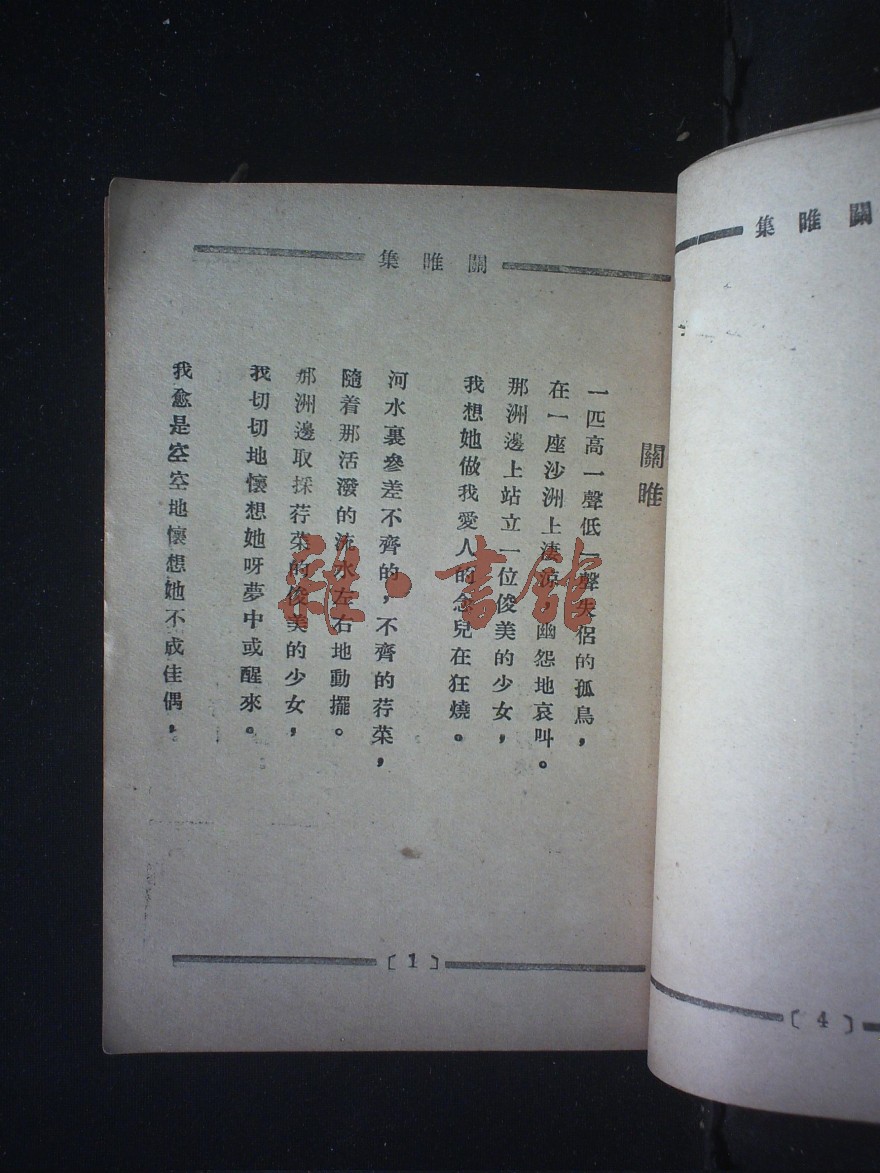 關雎集
關雎
一匹高一聲低一聲失侶的孤鳥，
在一座沙洲上淒涼，幽怨地哀叫。
那洲邊上站立一位俊美的少女，
我想她做我愛人的念兒在狂燒。
河水裏參差不齊的，不齊的荇菜，
隨着那活潑的流水左右地動擺。
那洲邊取採荇菜的俊美的少女，
我切切地懷想她呀夢中或醒來。
我愈是空空地懷想她不成佳偶，
〔1〕
關雎集
〔4〕
雜·書館